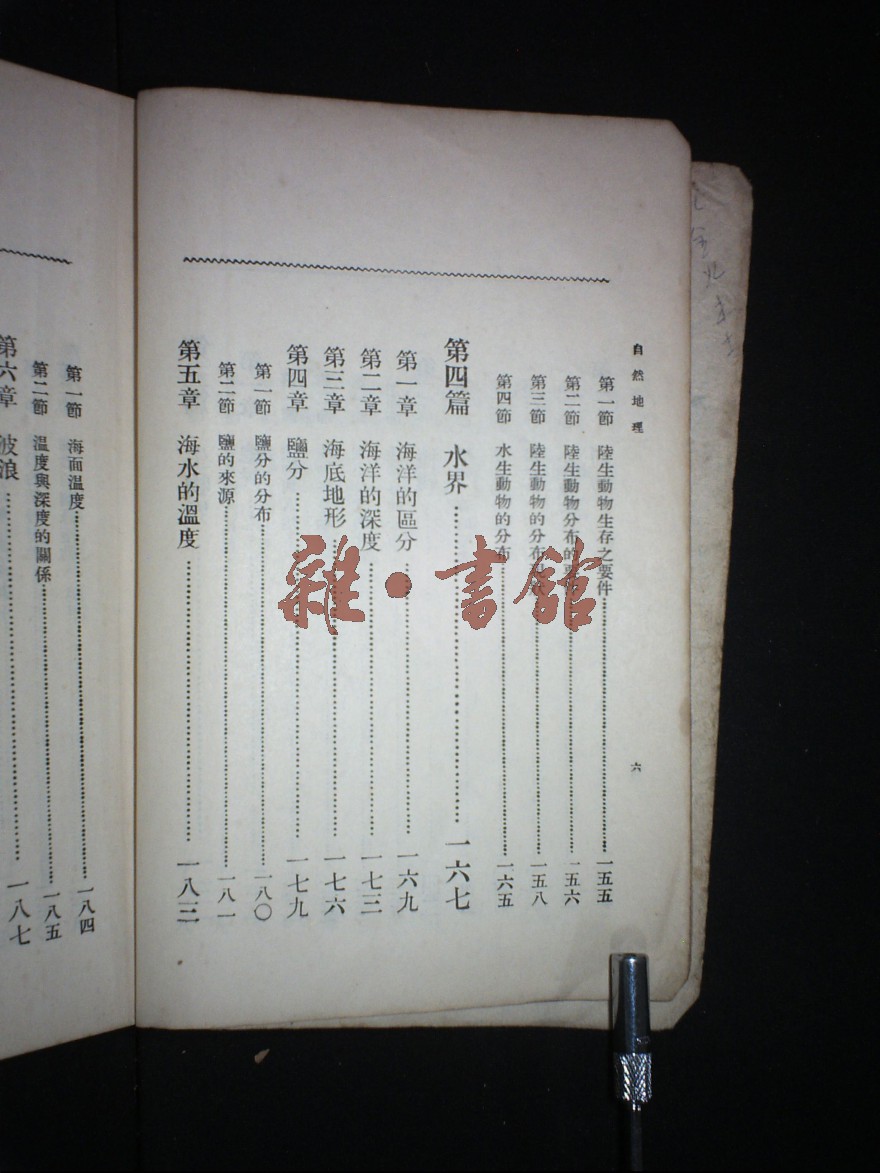 自然地理
六
第一節 陸生動物生存之要件 一五五
第二節 陸生動物分布的要件 一五六
第三節 陸生動物的分布 一五八
第四節 水生動物的分布 一六五
第四篇 水界 一六七
第一章 海洋的區分 一六九
第二章 海洋的深度 一七三
第三章 海底地形 一七六
第四章 鹽分 一七九
第一節 鹽分的分布 一八〇
第二節 鹽的來源 一八一
第五章 海水的溫度 一八三
第一節 海面溫度 一八四
第二節 溫度與深度的關係 一八五
第六章 波浪 一八七
雜·書館